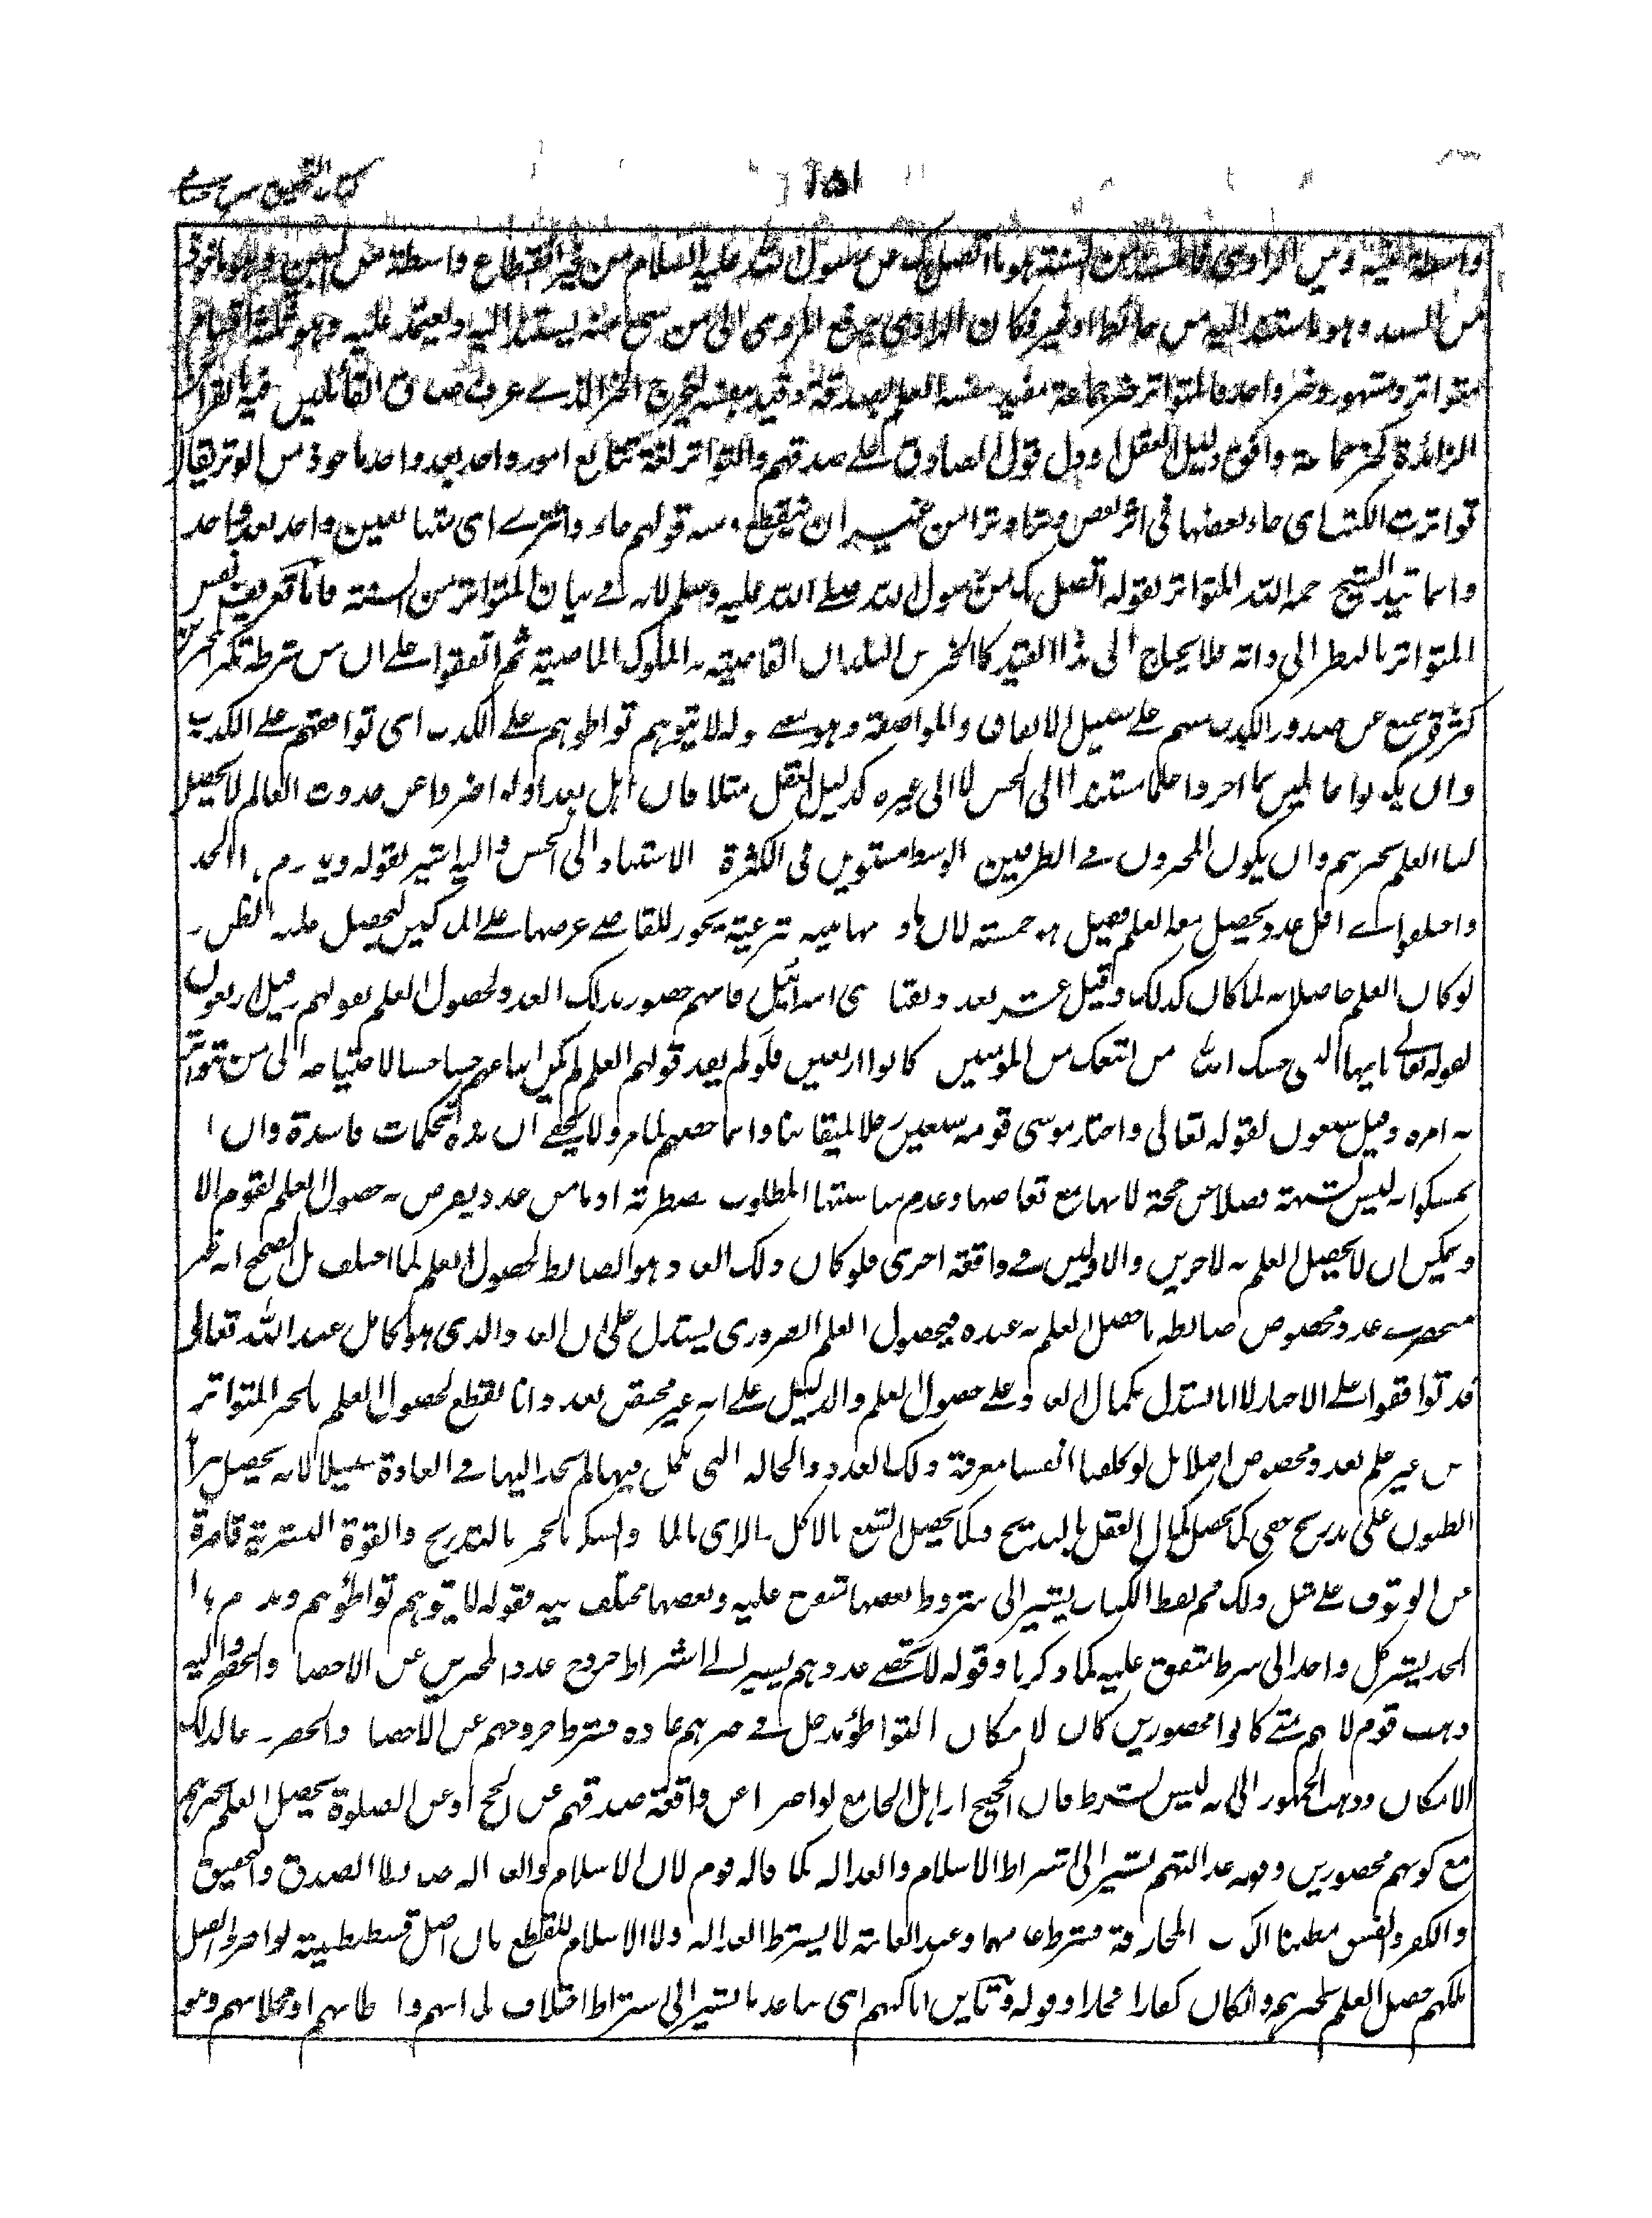 ١٥١
كتاب التحقيق شرح حسامى
واسطة وبين الراوى فالمسند من السنة هو ما اتصل بك من رسول الله عليه السلام من غير انقطاع واسطة من البين وهو ماخوذ
من السند وهو ما استند اليه من حائط او غيره فكان الراوى يرفع المروى الى من سمع منه يستند اليه ويعتمد عليه وهو ثلثة اقسام
متواتر ومشهور وخبر واحد فالمتواتر خبر جماعة مفيد بنفسه العلم بصدقه وقيد بنفسه ليخرج الخبر الذى عرف صدق القائلين فيه بالقرائن
الزائدة كخبر جماعة وافق دليل العقل او دل قول الصادق على صدقهم والتواتر لغة تتابع امور واحد بعد واحد ماخوذ من الوتر يقال
تواترت الكتب اى جاء بعضها فى اثر بعض وترا وترا من غير ان ينقطع ومنه قولهم جاءوا تترى اى متتابعين واحد بعد واحد
وانما قيد الشيخ رحمه الله المتواتر بقوله اتصل بك من رسول الله صلى الله عليه وسلم لانه فى بيان المتواتر من السنة فاما تعريف نفس
المتواتر بالنظر الى ذاته فلا يحتاج الى هذا القيد كالخبر عن البلدان القاصية والملوك الماضية ثم اتفقوا على ان من شرطه تكثر المخبرين
كثرة تمنع عن صدور الكذب منهم على سبيل الاتفاق والمواضعة وهو معنى قوله لا يتوهم تواطؤهم على الكذب اى توافقهم على الكذب
وان يكونوا عالمين بما اخبروا علما مستندا الى الحس لا الى غيره كدليل العقل مثلا فان اهل بغداد لو اخبروا عن حدوث العالم لا يحصل
لنا العلم بخبرهم وان يكون المخبرون فى الطرفين والوسط مستوين فى الكثرة والاستناد الى الحس واليه اشير بقوله ويدوم هذا الحد
واختلفوا فى اقل عدد يحصل معه العلم فقيل هو خمسة لان ما دونها بينة شرعية يجوز للقاضى عرضها على المزكين ليحصل غلبة الظن
لو كان العلم حاصلا به لما كان كذلك وقيل اثنا عشر بعدد نقباء بنى اسرائيل فانهم خصوا بذلك العدد لحصول العلم بقولهم وقيل اربعون
لقوله تعالى يا ايها النبى حسبك الله ومن اتبعك من المؤمنين كانوا اربعين فلو لم يفد قولهم العلم لم يكن حسبا لاحتياجه الى من يتواتر
به امره وقيل سبعون لقوله تعالى واختار موسى قومه سبعين رجلا لميقاتنا وانما خصهم لما مر ولا يخفى ان هذه تحكمات فاسدة وان ما
تمسكوا به ليس بشبهة فضلا عن حجة لانها مع تعارضها وعدم مناسبتها المطلوب مضطربة اذ ما من عدد يفرض به حصول العلم لقوم الا
ويمكن ان لا يحصل العلم به لاخرين والاولين فى واقعة اخرى فلو كان ذلك العدد هو الضابط لحصول العلم لما اختلف بل الصحيح انه غير
منحصر فى عدد مخصوص وضابطه ما حصل العلم به عنده فبحصول العلم الضرورى يستدل على ان العدد الذى هو كامل عند الله تعالى
قد توافقوا على الاخبار لا انا نستدل بكمال العدد على حصول العلم والدليل على انه غير مختص بعدد انا نقطع بحصول العلم بالخبر المتواتر
من غير علم بعدد مخصوص اصلا بل لو كلفنا انفسنا معرفة ذلك العدد والحالة التى يكمل فيها لم نجد اليها فى العادة سبيلا لانه يحصل بتزايد
الظنون على تدريج خفى كما يحصل كمال العقل بالتدريج وكما يحصل الشبع بالاكل والرى بالماء والسكر بالخمر بالتدريج والقوة البشرية قاصرة
عن الوقوف على مثل ذلك ثم لفظ الكتاب يشير الى شروط بعضها متفق عليه وبعضها مختلف فيه فقوله لا يتوهم تواطؤهم ويدوم هذا
الحد يشير كل واحد الى شرط متفق عليه كما ذكرنا وقوله لا يحصى عددهم يشير الى اشتراط خروج عدد المخبرين عن الاحصاء والحصر واليه
ذهب قوم لانهم متى كانوا محصورين كان لامكان التواطؤ مدخل فى خبرهم عادة فشرط خروجهم عن الاحصاء والحصر دفعا لذلك
الامكان وذهب الجمهور الى انه ليس بشرط فان الحجيج او اهل الجامع لو اخبروا عن واقعة صدتهم عن الحج او عن الصلوة يحصل العلم بخبرهم
مع كونهم محصورين وقوله عدالتهم يشير الى اشتراط الاسلام والعدالة كما قاله قوم لان الاسلام والعدالة ضابطا الصدق والتحقيق
والكفر والفسق مظنتا الكذب والمجازفة فشرط عدمهما وعند العامة لا يشترط العدالة ولا الاسلام للقطع بان اهل قسطنطينية لو اخبروا بقتل
ملكهم حصل العلم بخبرهم وان كان كفارا وقوله وتباين اماكنهم اى تباعدها يشير الى اشتراط اختلاف بلدانهم واوطانهم ومحلاتهم وهو